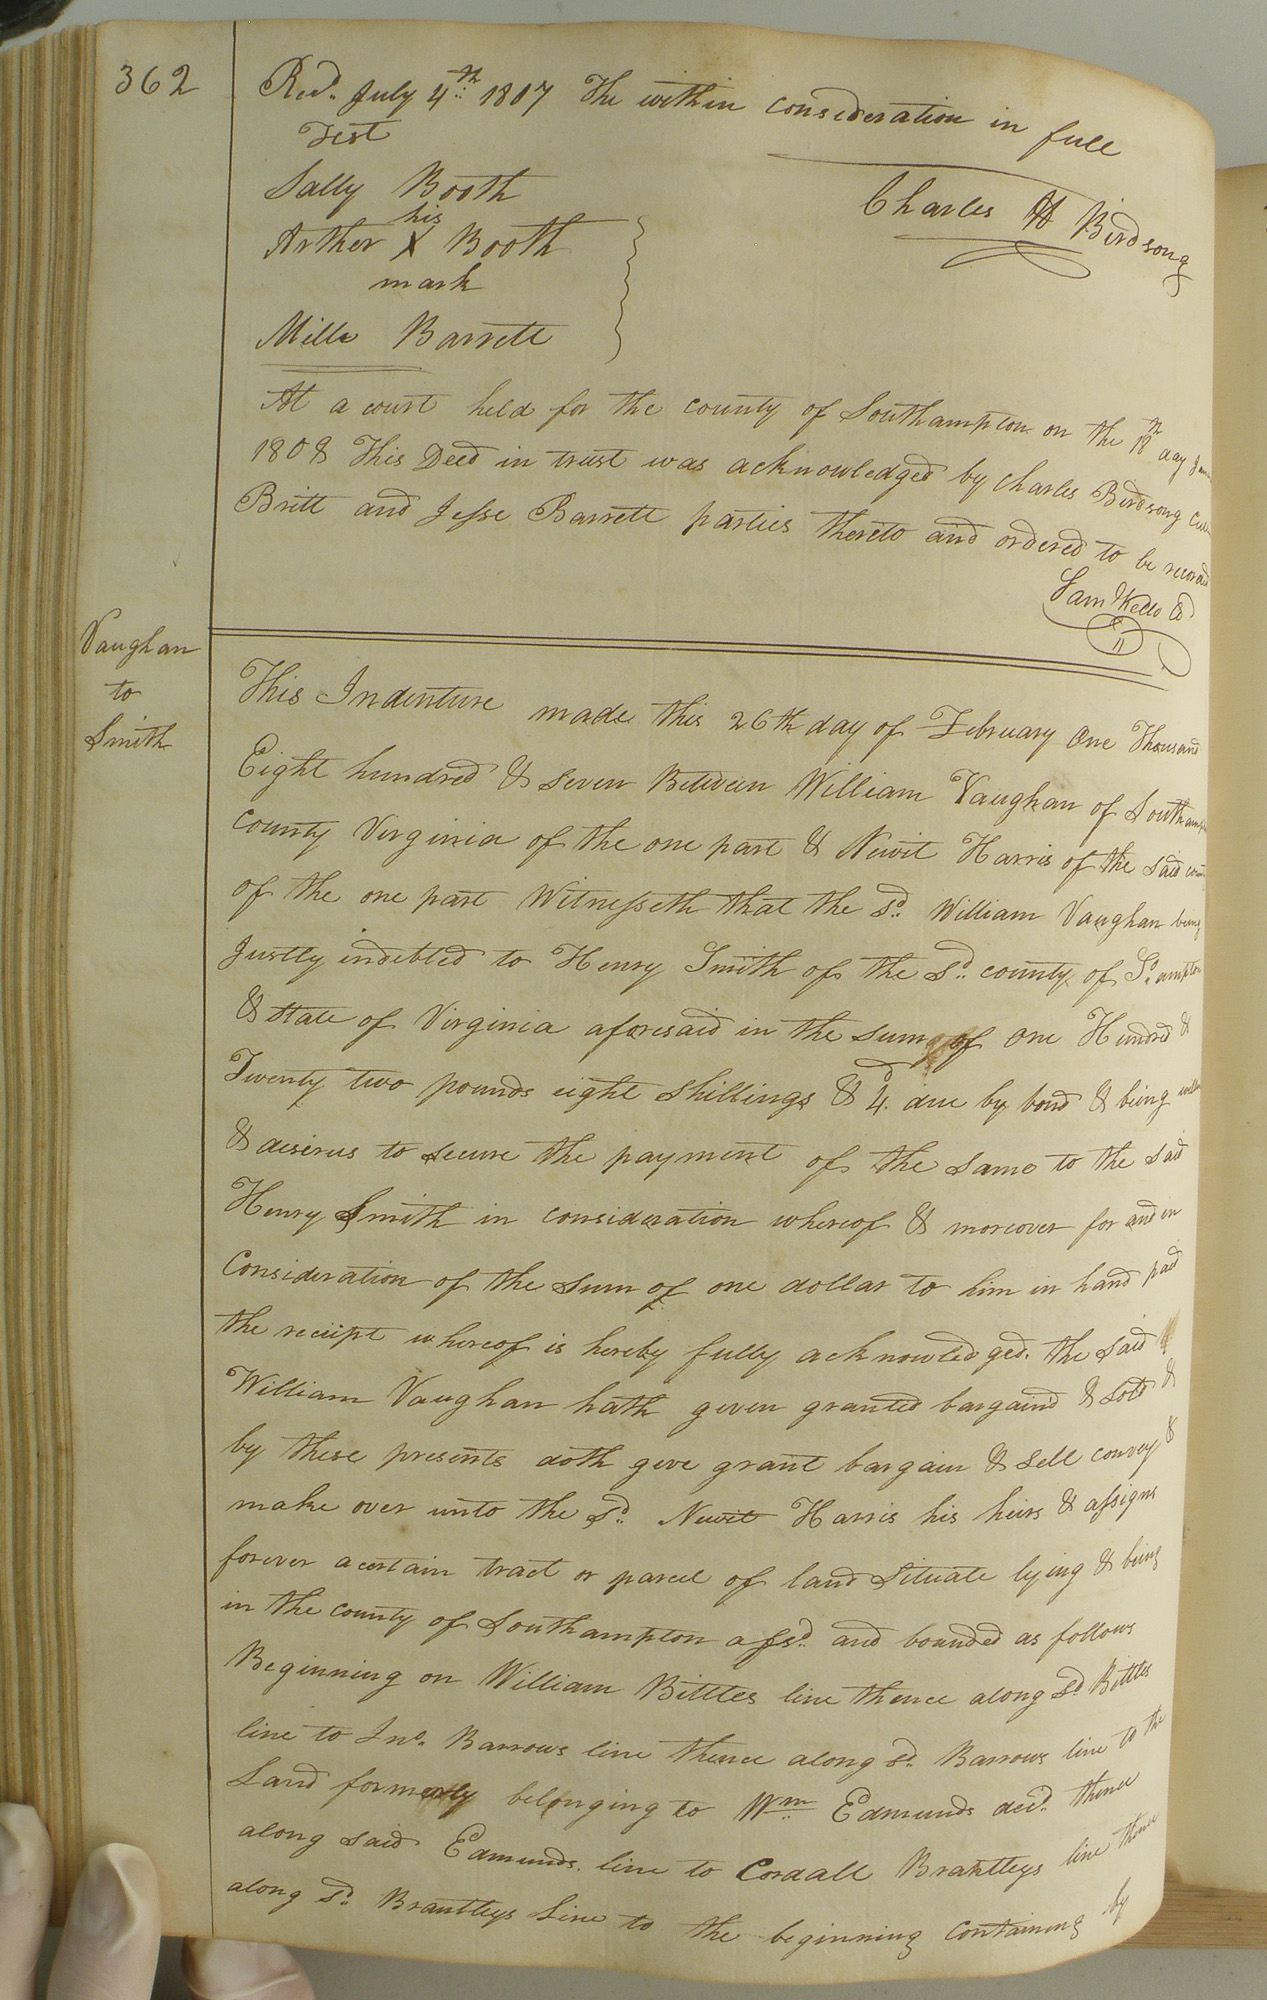 362
Recd. July 4th 1807 The within consideration in full
Test
Sally Booth
Charles H Birdsong
his
Arther X Booth
mark
Mills Barrett
At a court held for the county of Southampton on the 18th day
1808 This Deed in trust was acknowledged by Charles Birdsong
Britt and Jesse Barrett parties thereto and ordered to be recorded
Sam Kello
Vaughan
to
Smith
This Indenture made this 26th day of February One Thousand
Eight hundred & seven Between William Vaughan of Southampt
County Virginia of the one part & Newit Harris of the said county
of the one part Witnesseth that the sd. William Vaughan being
Justly indebted to Henry Smith of the sd. county of So.ampton
& State of Virginia aforesaid in the sum of One Hundred &
Twenty two pounds eight shillings & 4d. due by bond & being
& desirus to secure the payment of the same to the said
Henry Smith in consideration whereof & moreover for and in
Consideration of the sum of one dollar to him in hand paid
the receipt whereof is hereby fully acknowledged. the said
William Vaughan hath given granted bargaind & sold &
by these presents doth give grant bargain & sell convey &
make over unto the sd. Newit Harris his heirs & assigns
forever a certain tract or parcel of land Situate lying & being
in the county of Southampton afsd. and bounded as follows
Beginning on William Bittles line thence along sd Bittles
line to Jno. Barrows line thence along sd. Barrows line to the
Land formerly belonging to Wm Edmunds decd. thence
along said Edmunds line to Cordall Brantleys line thence
along sd. Brantleys line to the beginning containing by